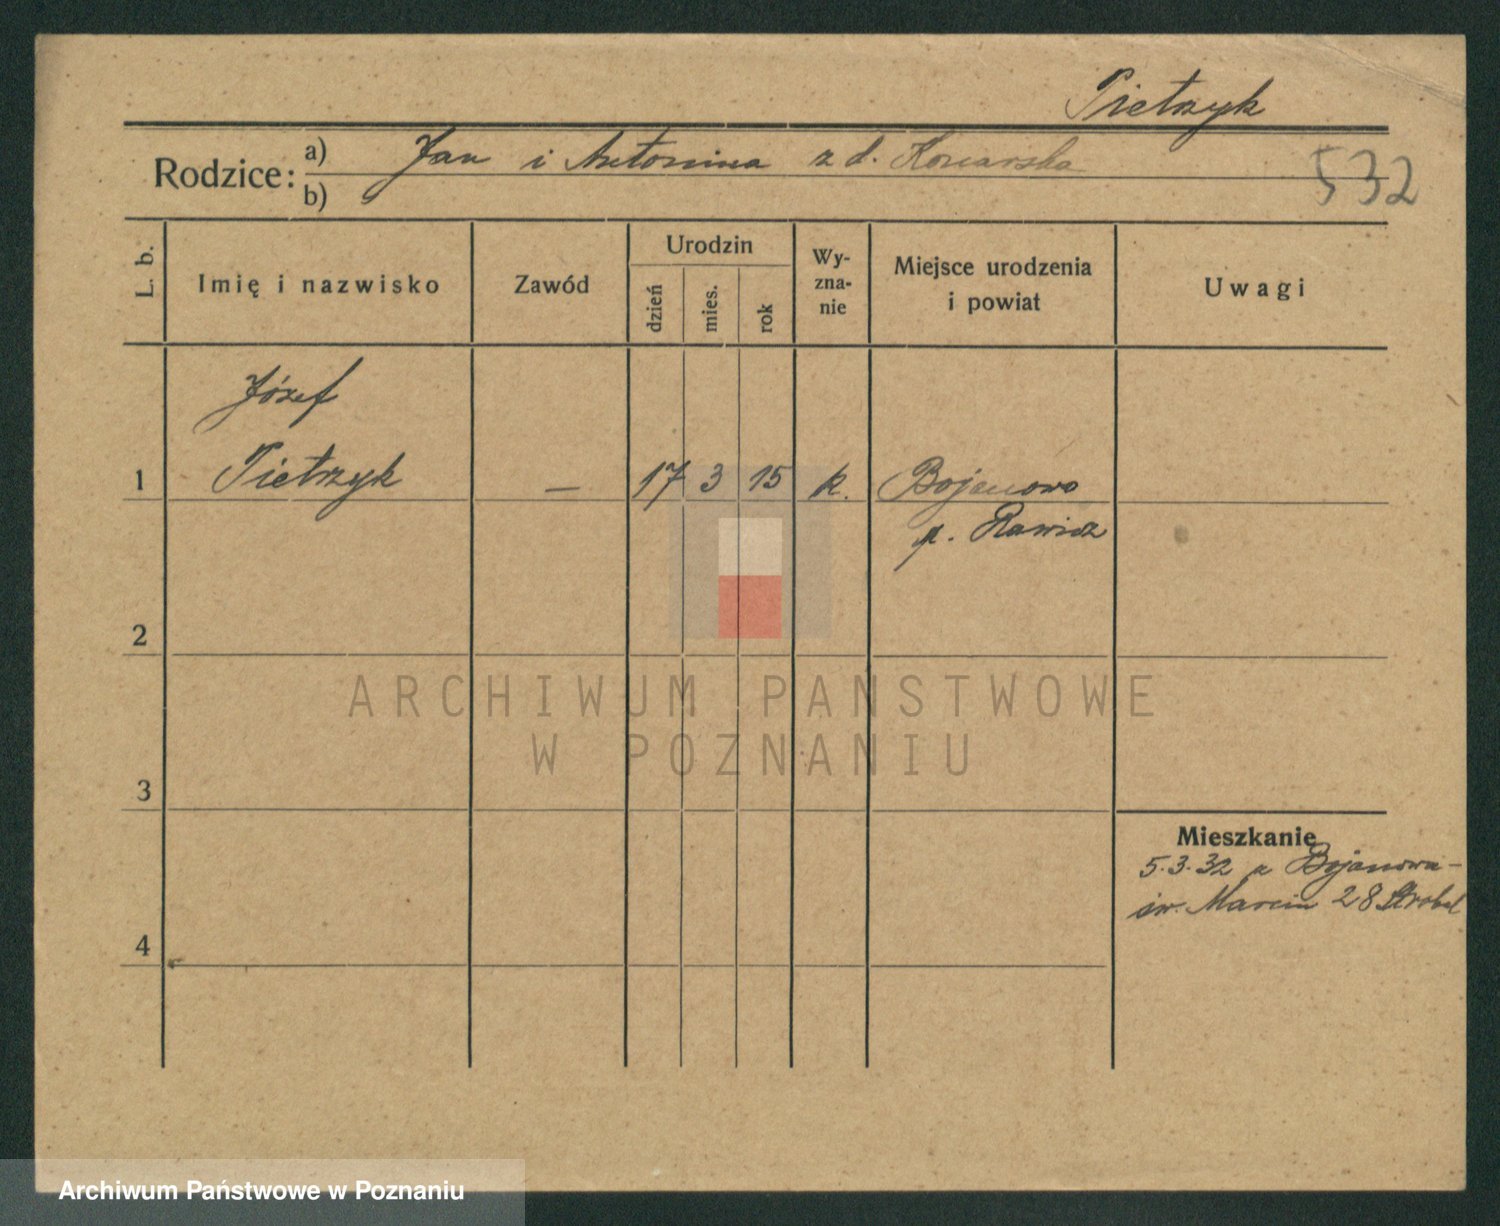 Pietrzyk
Rodzice: a) Jan i Antonina z d. Konarska
b)
532
L. b.
Imię i nazwisko
Zawód
Urodzin
dzień
mies.
rok
Wy-
zna-
nie
Miejsce urodzenia
i powiat
Uwagi
Józef
1 Pietrzyk – 17 3 15 k. Bojanowo
p. Rawicz
2
3
4
Mieszkanie
5.3.32 z Bojanowa –
św. Marcin 28 Strobel
ARCHIWUM PANSTWOWE
W POZNANIU
Archiwum Państwowe w Poznaniu